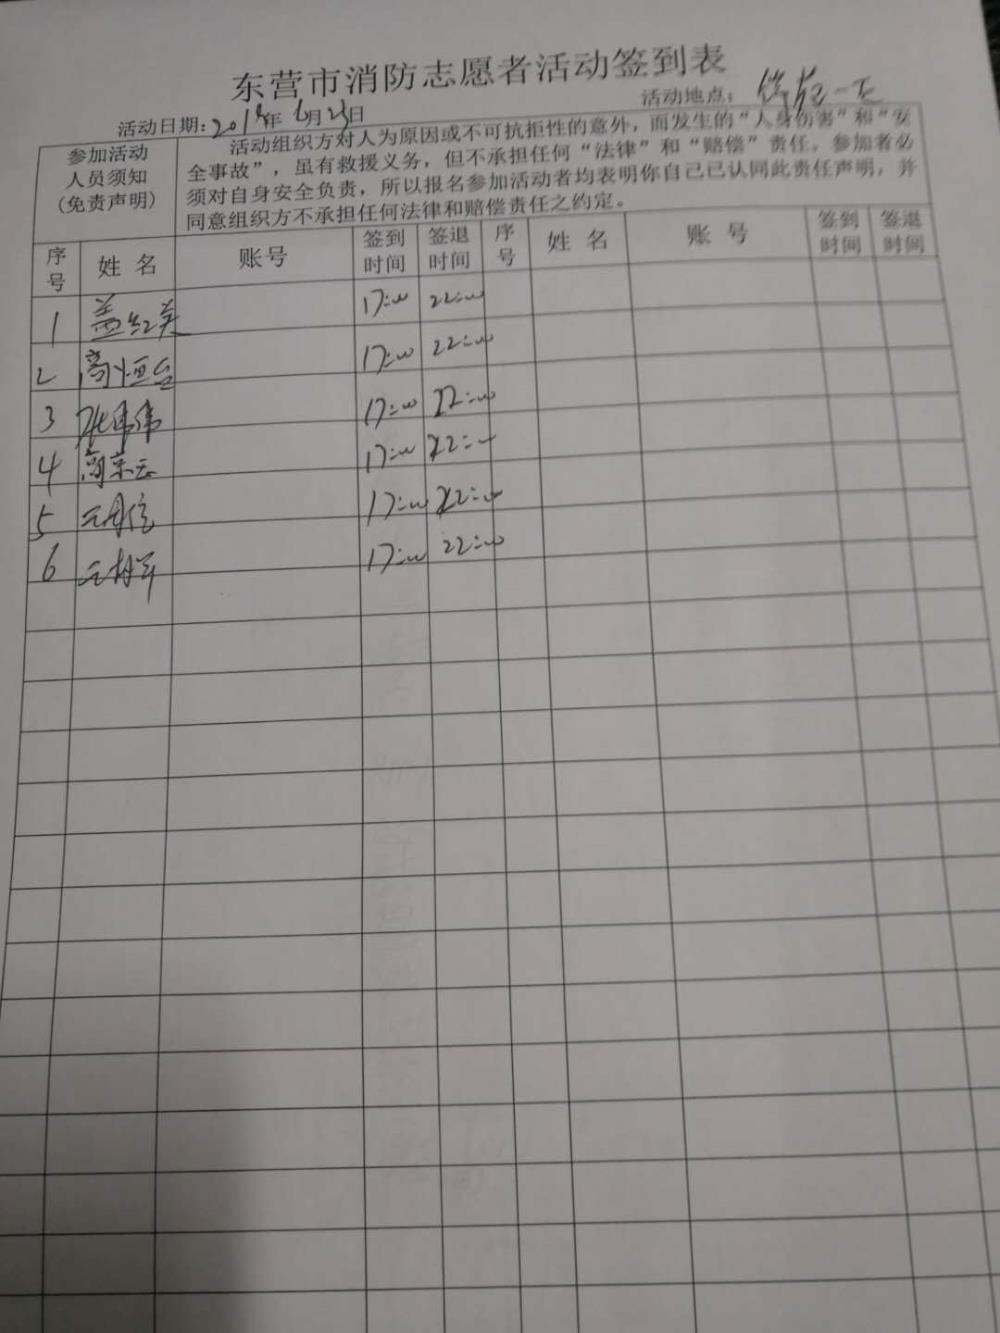 东营市消防志愿者活动签到表
活动日期:2018年6月23日 活动地点:
参加活动
人员须知
(免责声明)
活动组织方对人为原因或不可抗拒性的意外，而发生的“人身伤害”和“安
全事故”，虽有救援义务，但不承担任何“法律”和“赔偿”责任。参加者必
须对自身安全负责，所以报名参加活动者均表明你自己已认同此责任声明，并
同意组织方不承担任何法律和赔偿责任之约定。
序号 姓名 账号 签到时间 签退时间 序号 姓名 账号 签到时间 签退时间
1 盖红英 17:00 22:00
2 高恒台 17:00 22:00
3 张伟伟 17:00 22:00
4 高荣云 17:00 22:00
5 17:00 22:00
6 17:00 22:00